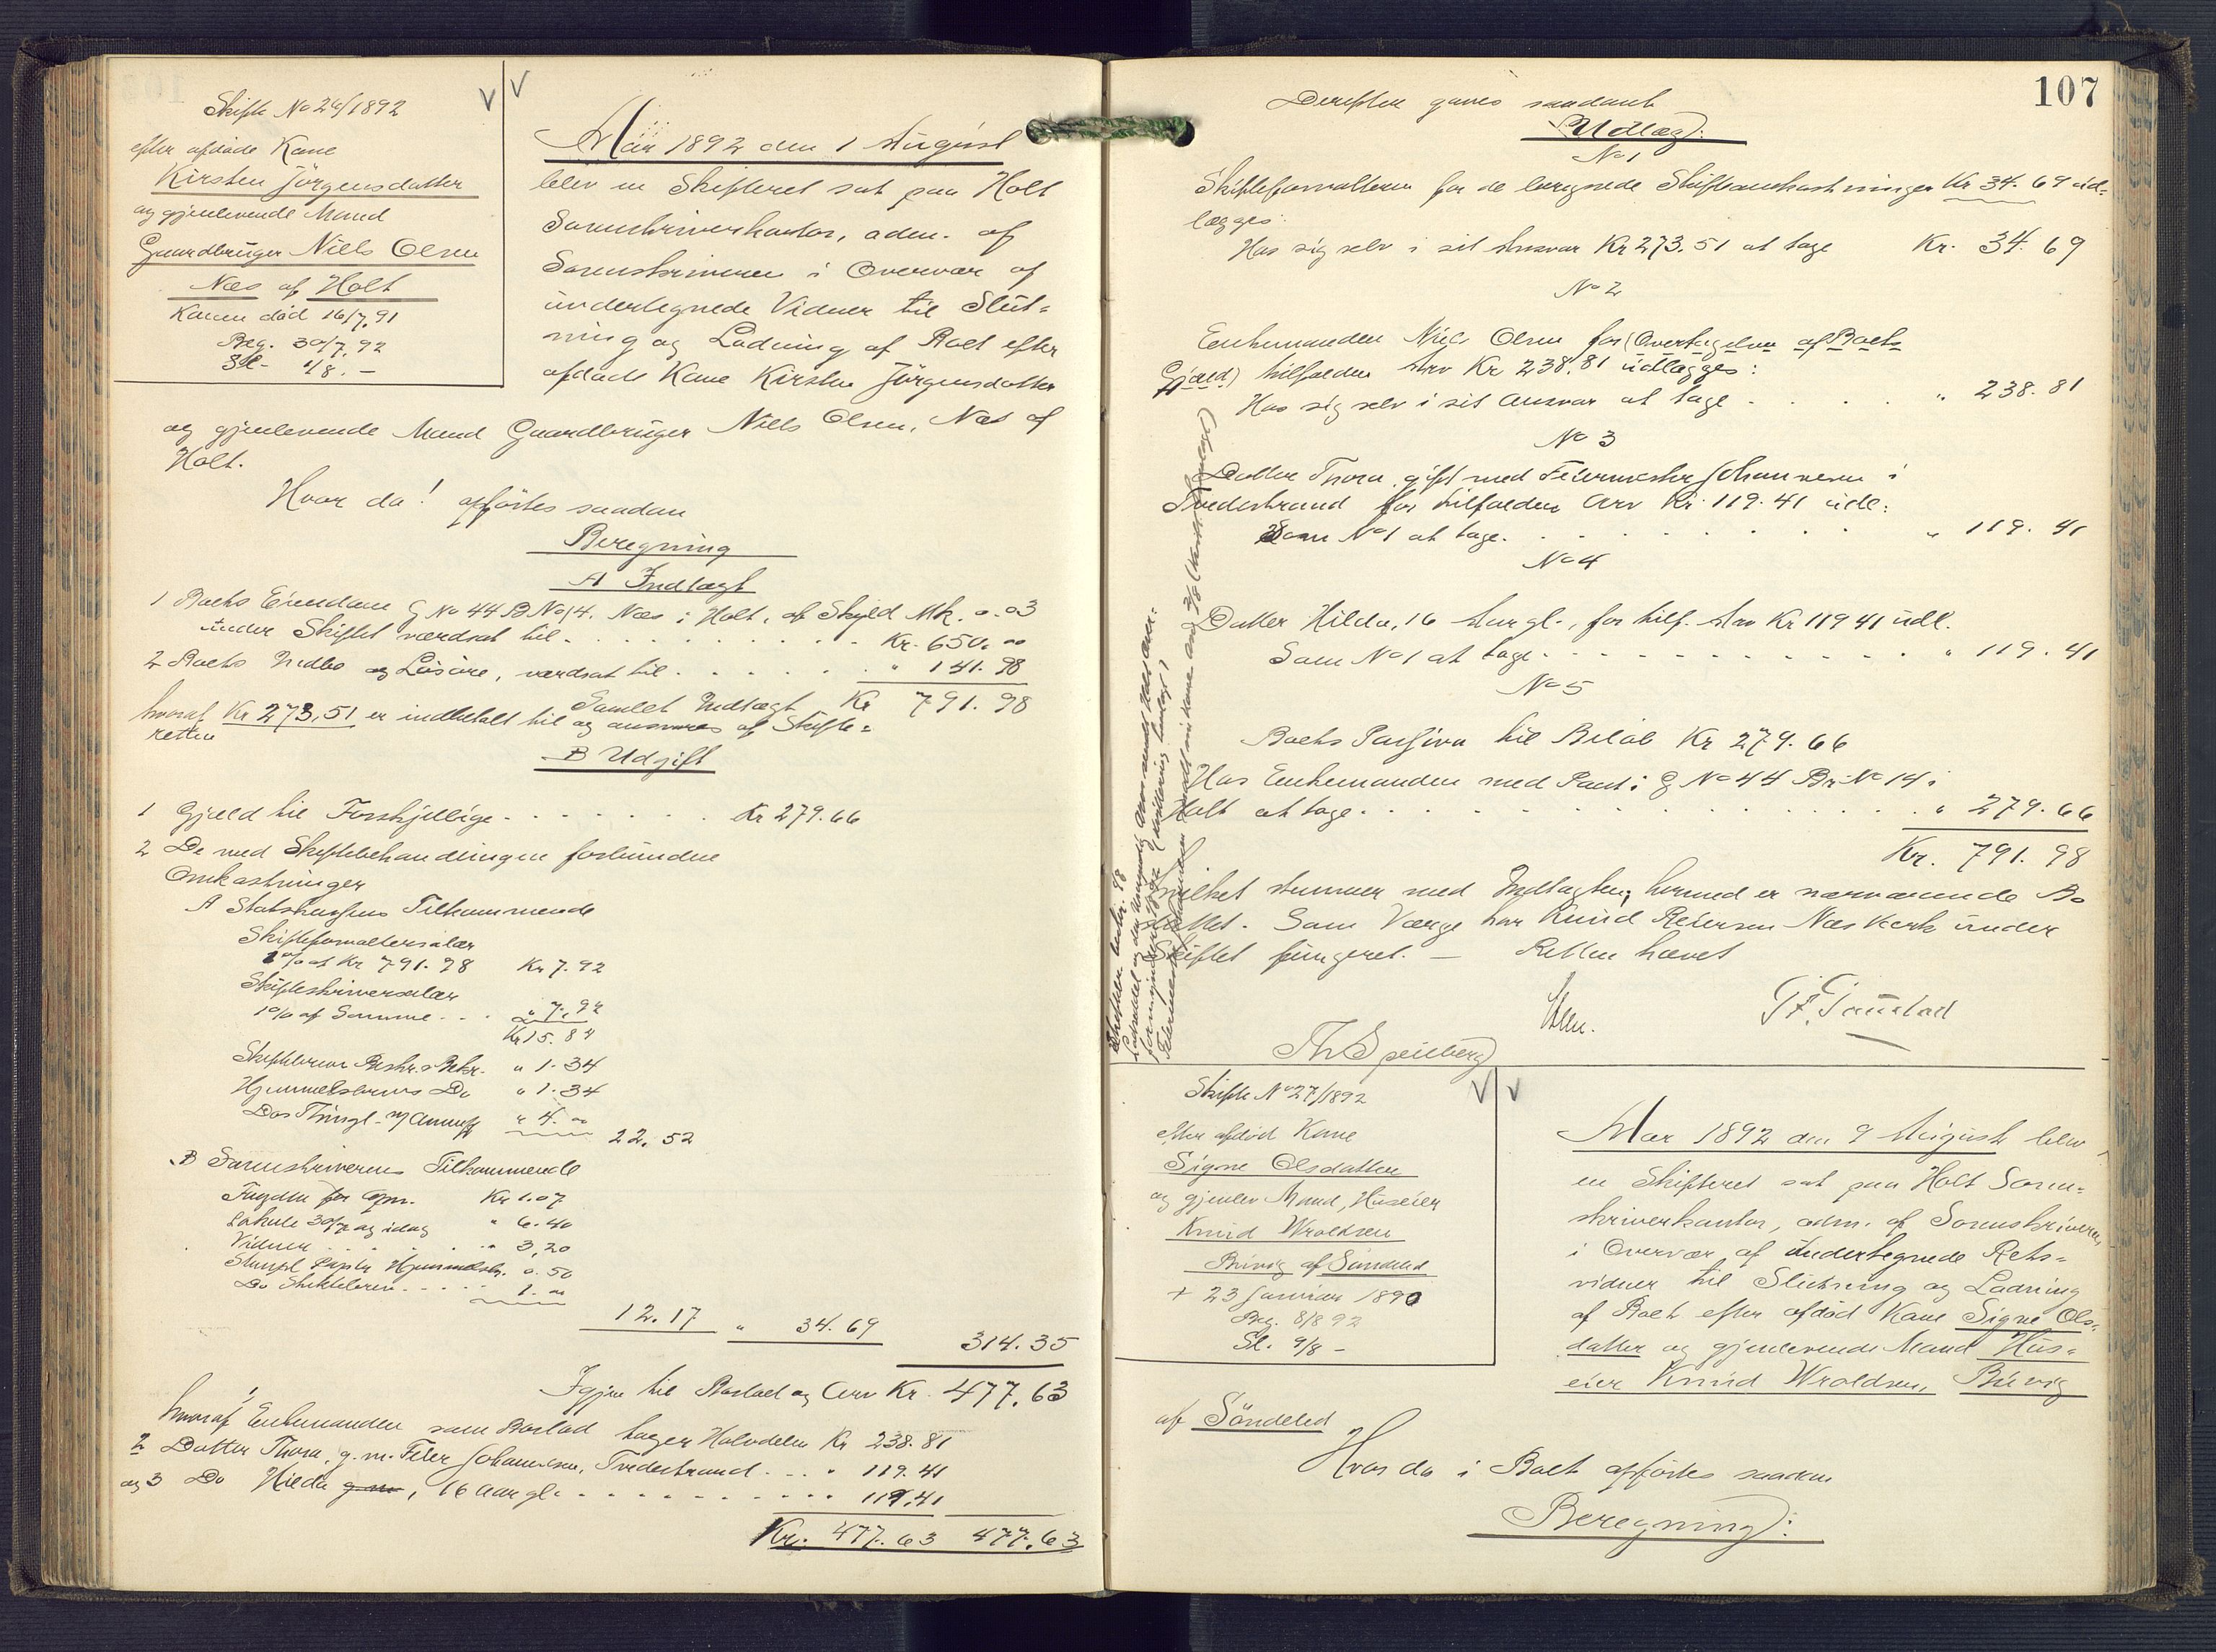 Skifte No 26/1892
efter afdöde Kone
Kirsten Jörgensdatter
og gjenlevende Mand
Gaardbruger Niels Olsen
Næs af Holt
Konen död 16/7 91
Beg. 30/7 92
Sl. 1/8. –
Aar 1892 den 1 August
blev en Skifteret sat paa Holt
Sorenskriverkontor, adm. af
Sorenskriveren i Overvær af
undertegnede Vidner til Slut-
ning og Lodning af Boet efter
afdöde Kone Kirsten Jörgensdatter
og gjenlevende Mand Gaardbruger Niels Olsen, Næs af
Holt.
Hvor da! opförtes saadan
Beregning
A Indtægt
1 Boets Eiendom G No 44 B No 14. Næs i Holt, af Skyld Mk. 0.03
under Skiftet værdsat til . . . Kr. 650.00
2 Boets Indbo og Lösöre, værdsat til . . . " 141.98
Samlet Indtægt Kr 791.98
hvoraf Kr 273,51 er indbetalt til og ansvares af Skifte-
retten
B Udgift
1 Gjæld til Forskjellige . . . Kr 279.66
2 De med Skiftebehandlingen forbundne
Omkostninger
A Statskassens Tilkommende
Skifteforvaltersalær
1% af Kr 791.98 Kr 7.92
Skifteskriversalær
1% af Samme . . . " 7.92
Kr 15.84
Skiftebrev Beskr. " 1.34
Hjemmelsbrevs Do " 1.34
Dos Thingl. " 4.00
22.52
B Sorenskriverens Tilkommende
Kr 1.07
30/7 og idag " 6.40
Vidner . . . " 3,20
Stempl. Papir Hjemmelsbr. 0.50
Do Skiftebrev . . . 1.00
12.17 " 34.69 314.35
Igjen til Boslod og Arv Kr. 477.63
hvoraf 1 Enkemanden som Boslod tager Halvdelen Kr 238.81
2 Datter Thora, g. m. Feier Johannesen, Tvedestrand . . . " 119.41
og 3 Do Hilda g. m., 16 Aar gl. . . . 119.41
Kr. 477.63 477.63
107
Derefter gaves saadant
Udlæg:
No 1
Skifteforvalteren for de beregnede Skifteomkostninger Kr 34.69 ud-
lægges:
Hos sig selv i sit Ansvar Kr 273.51 at tage Kr. 34.69
No 2
Enkemanden Niels Olsen for (Overtagelse af Boets
Gjæld) tilfalden Arv Kr 238.81 udlægges:
Hos sig selv i sit Ansvar at tage . . . " 238.81
No 3
Datter Thora, gift med Feiermester Johannesen i
Tvedestrand for tilfalden Arv Kr. 119.41 udl:
Som No 1 at tage. . . . " 119.41
No 4
Datter Hilda, 16 Aar gl., for tilf. Arv Kr 119 41 udl.
Som No 1 at tage . . . " 119.41
No 5
Boets Passiva til Belöb Kr 279.66
Hos Enkemanden med Pant i G No 44 Br No 14 i
Holt at tage . . . " 279.66
Kr. 791.98
hvilket stemmer med Indtægten, hermed er nærværende Bo
sluttet. Som Værge har Knud Reiersen Næs Værk under
Skiftet fungeret. – Retten hævet
Skifte No 27/1892
efter afdöd Kone
Signe Olsdatter
og gjenlev Mand, Huseier
Knud Wroldsen
Buvig af Söndeled
+ 23 Januar 1890
Beg. 8/8 92
Sl. 9/8 –
Aar 1892 den 9 August blev
en Skifteret sat paa Holt Soren-
skriverkontor, adm. af Sorenskriveren
i Overvær af undertegnede Rets-
vidner til Slutning og Lodning
af Boet efter afdöd Kone Signe Ols-
datter og gjenlevende Mand Hus-
eier Knud Wroldsen, Buvig
af Söndeled
Hvor da i Boet opförtes saadan
Beregning: